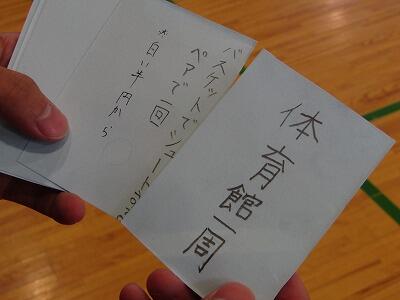 体育館一周
バスケットでシュート
ペアで一回
*白い半円から